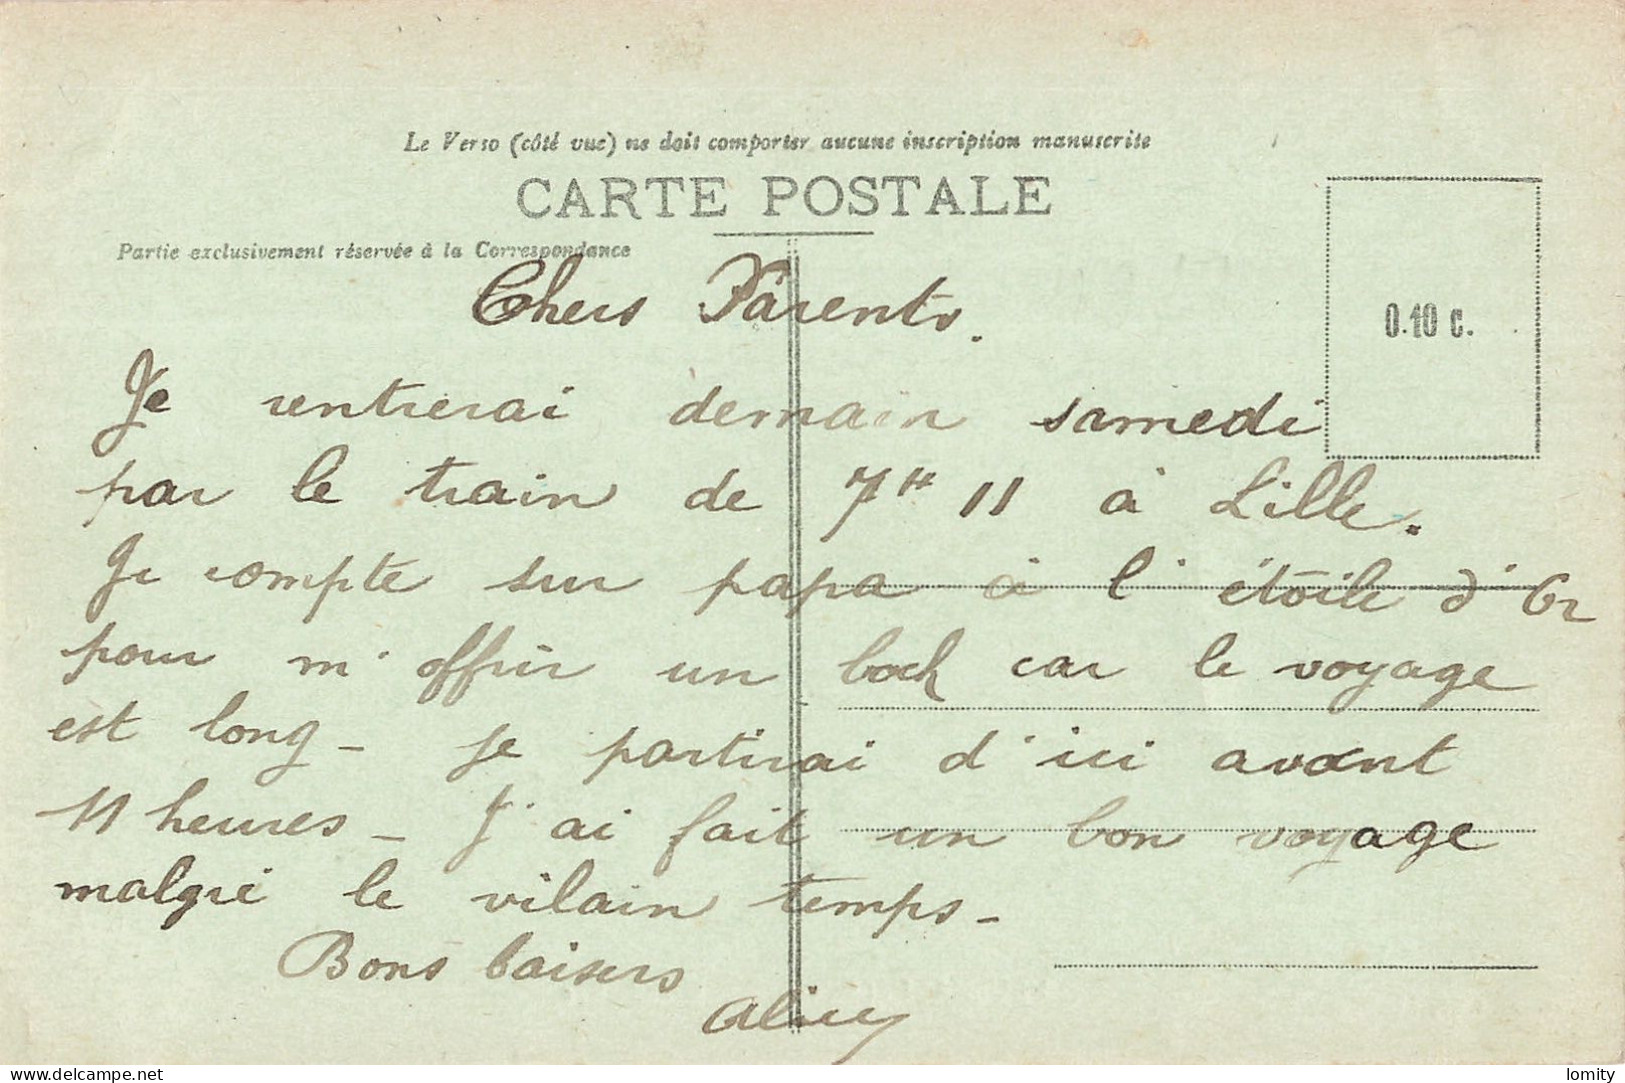 Le Verso (côté vue) ne doit comporter aucune inscription manuscrite
CARTE POSTALE
Partie exclusivement réservée à la Correspondance
0.10 C.
Chers Parents.
Je rentrerai demain samedi
par le train de 7 H 11 à Lille.
Je compte sur papa à l'étoile d'Or
pour m'offrir un bock car le voyage
est long - je partirai d'ici avant
11 heures - J'ai fait un bon voyage
malgré le vilain temps -
Bons baisers
delcampe.net
lomity